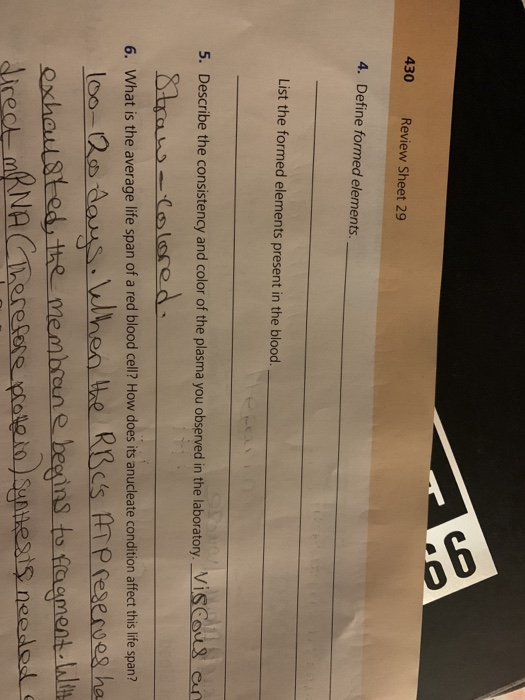 430 Review Sheet 29
4. Define formed elements.
List the formed elements present in the blood.
5. Describe the consistency and color of the plasma you observed in the laboratory. Viscous an
Straw-colored.
6. What is the average life span of a red blood cell? How does its anucleate condition affect this life span?
100-120 days. When the RBCs ATP reserves ha
exhausted, the membrane begins to fragment. With
direct mRNA (Therefore protein) synthesis needed
66